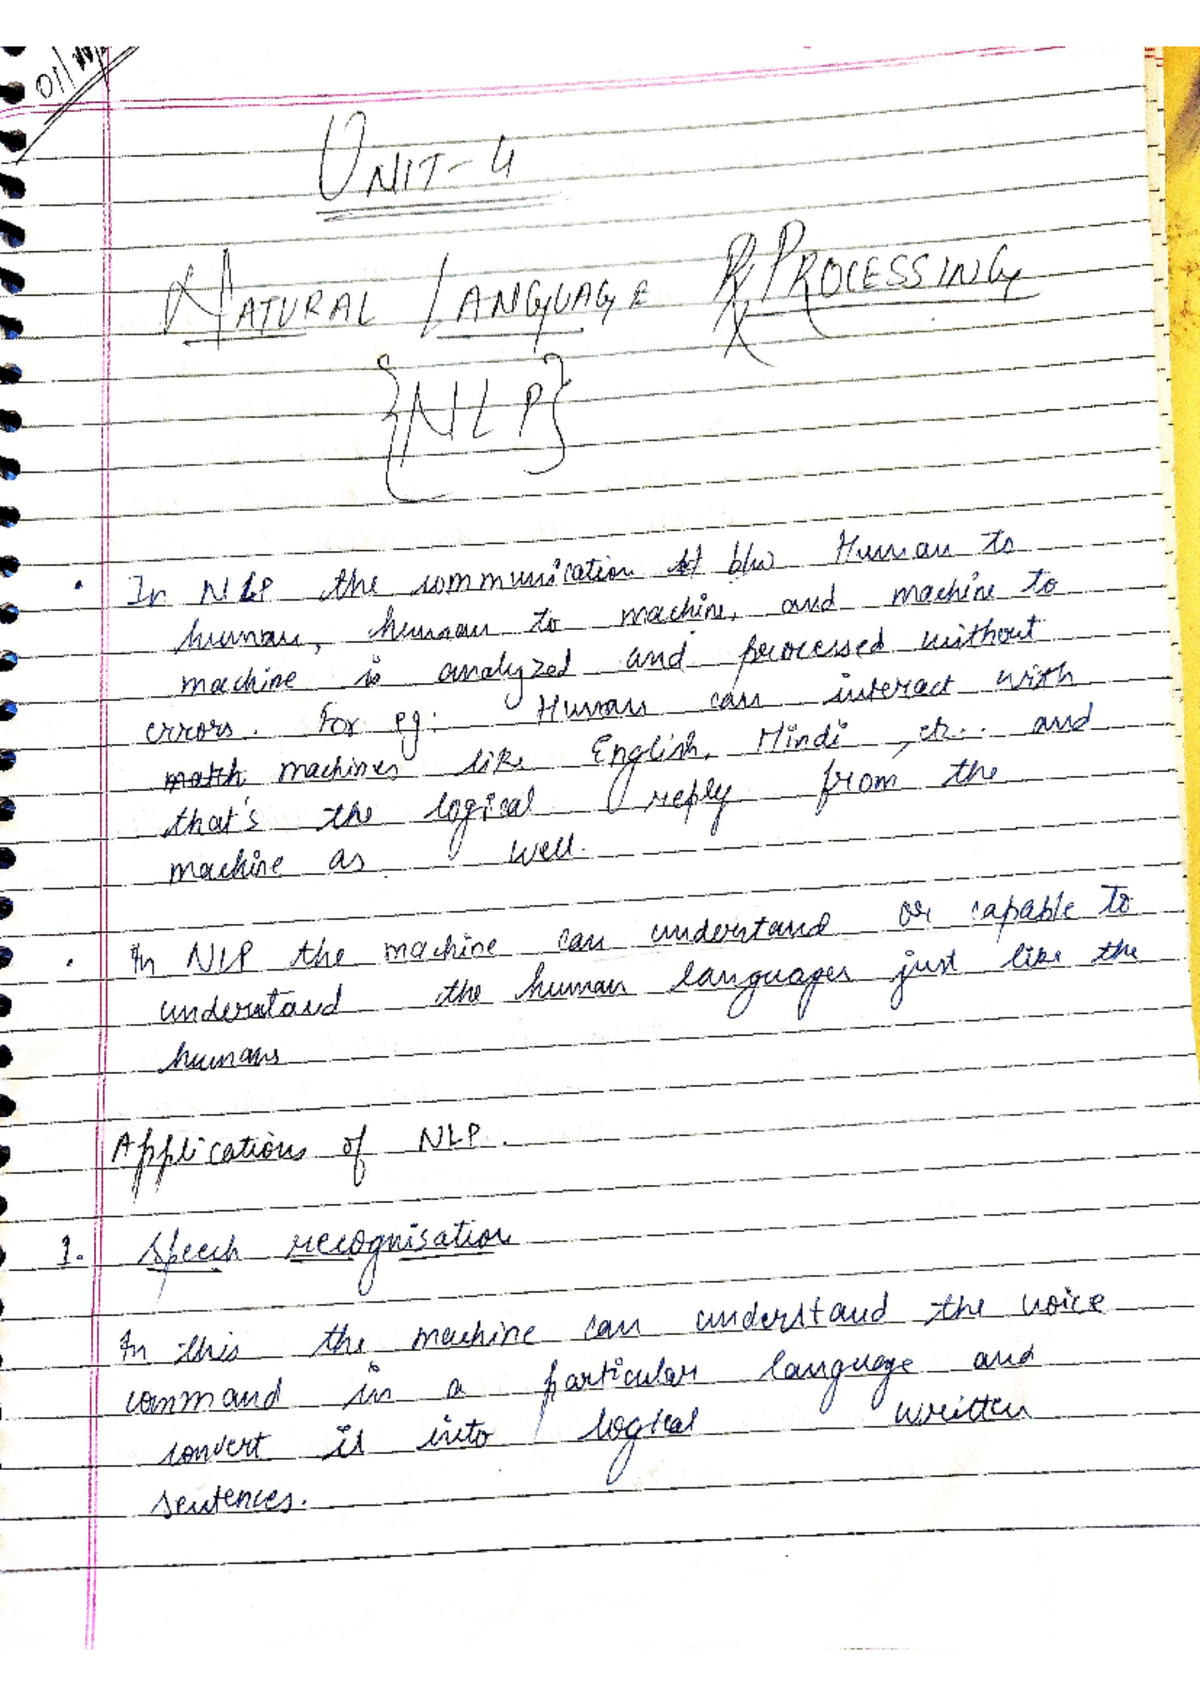 01/
UNIT-4
NATURAL LANGUAGE PROCESSING
{NLP}
• In NLP the communication b/w Human to
human, human to machine, and machine to
machine is analyzed and processed without
errors. For eg: Human can interact with
machines like English, Hindi, etc.. and
that's the logical reply from the
machine as well.
• In NLP the machine can understand or capable to
understand the human languages just like the
humans
Applications of NLP.
1. Speech recognisation
In this the machine can understand the voice
command in a particular language and
convert it into logical written
sentences.